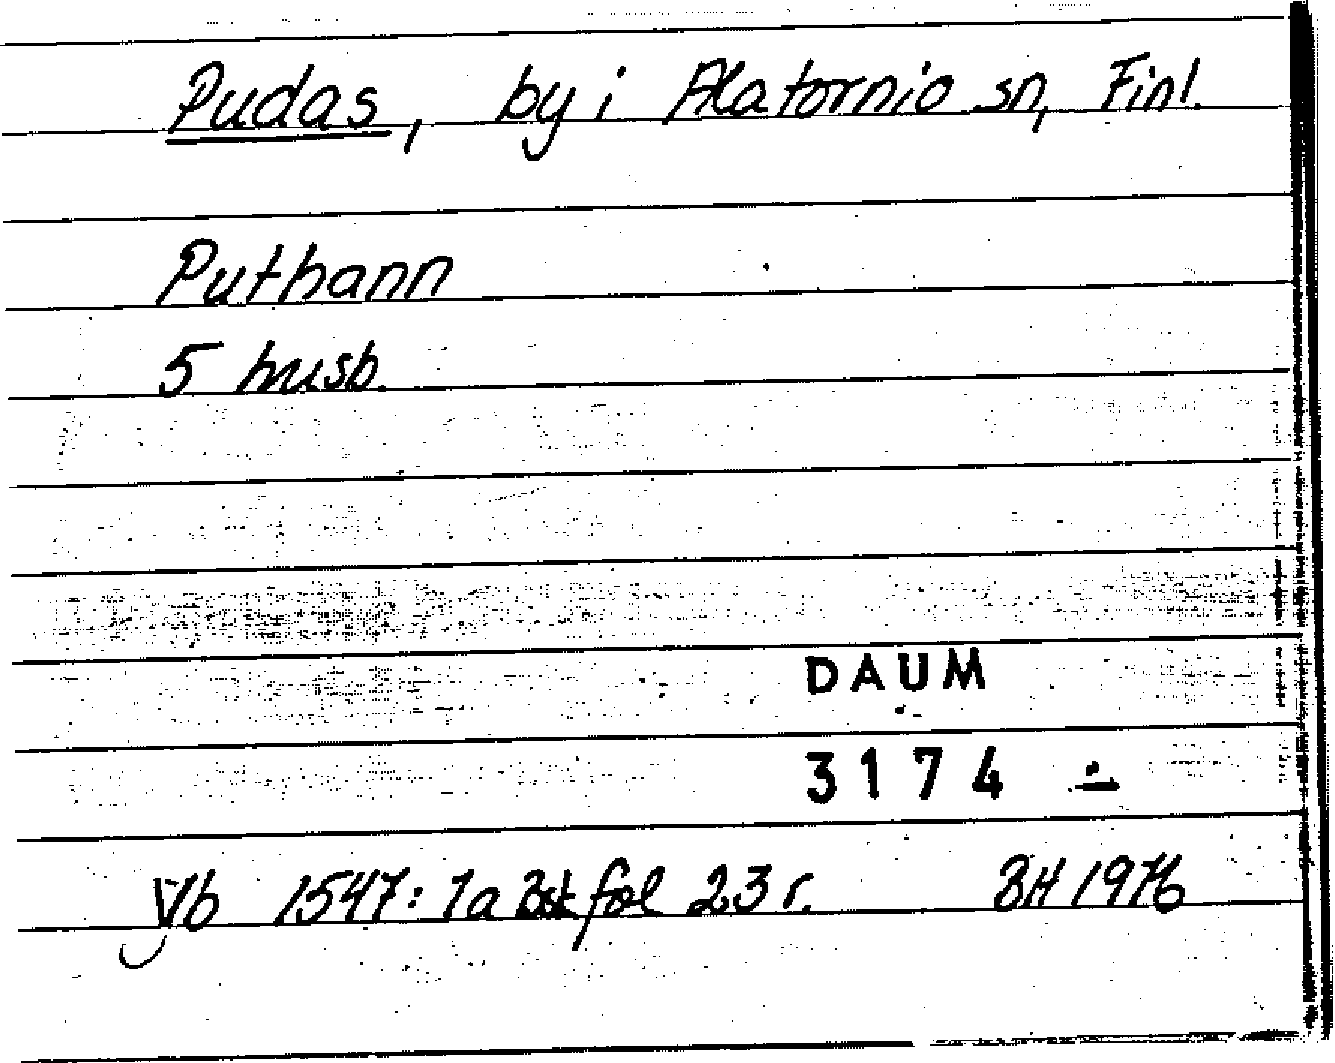 Pudas, by i Alatornio sn, Finl.
Puthann
5 husb.
DAUM
3174
Jb 1547: 7a fol 23 r. BH 1976